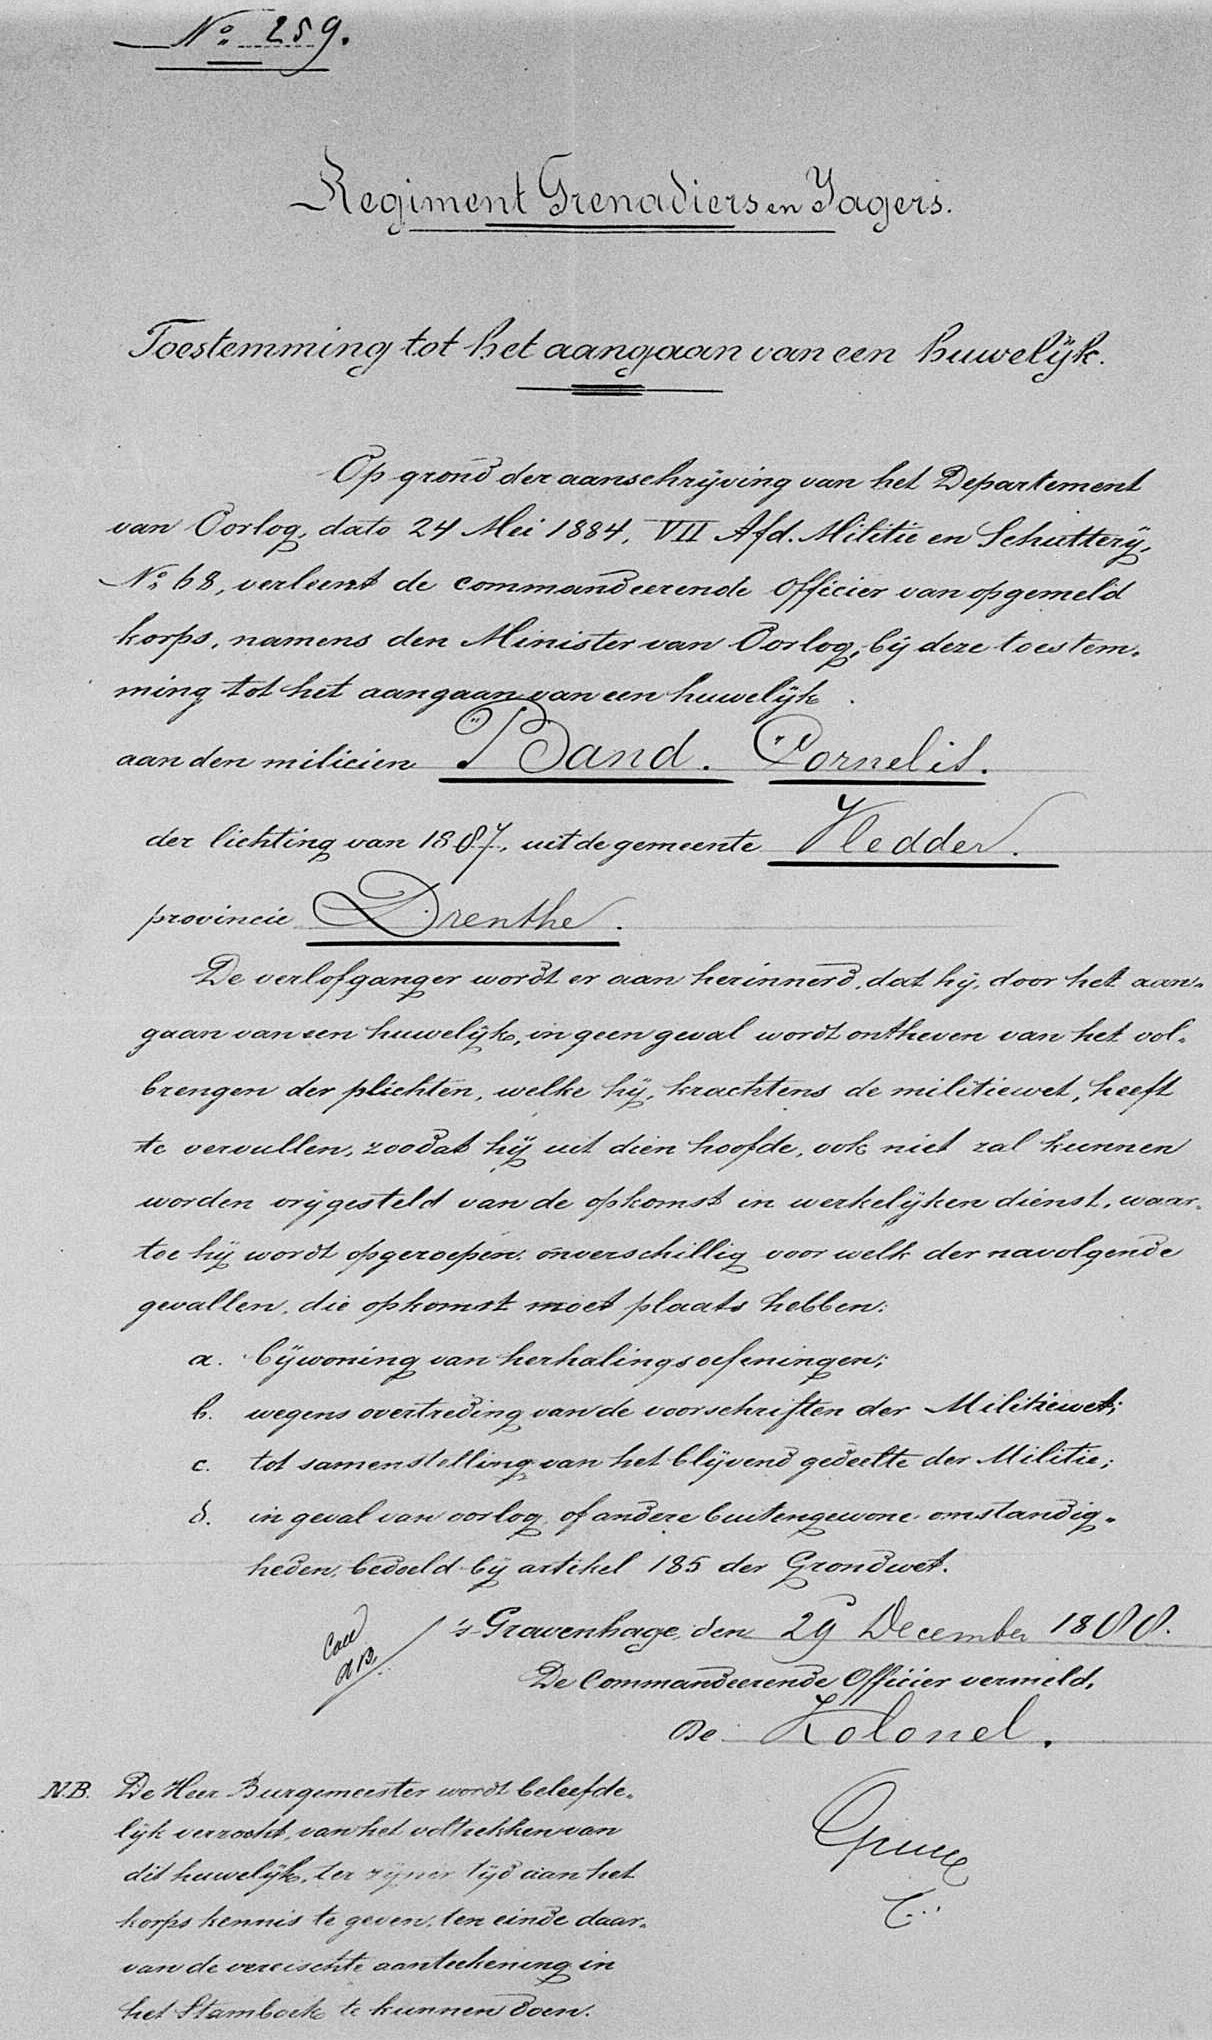 No 259.
Regiment Grenadiers en Jagers.
Toestemming tot het aangaan van een huwelijk.
Op grond der aanschrijving van het Departement
van Oorlog, dato 24 Mei 1884, VII Afd. Militie en Schutterij,
No 68, verleent de commandeerende Officier van opgemeld
korps, namens den Minister van Oorlog, bij deze toestem-
ming tot het aangaan van een huwelijk
aan den milicien Band. Cornelis.
der lichting van 1887, uit de gemeente Vledder.
provincie Drenthe.
De verlofganger wordt er aan herinnerd, dat hij, door het aan-
gaan van een huwelijk, in geen geval wordt ontheven van het vol-
brengen der plichten, welke hij, krachtens de militiewet, heeft
te vervullen, zoodat hij uit dien hoofde, ook niet zal kunnen
worden vrijgesteld van de opkomst in werkelijken dienst, waar-
toe hij wordt opgeroepen, onverschillig voor welk der navolgende
gevallen, die opkomst moet plaats hebben:
a. bijwoning van herhalingsoefeningen;
b. wegens overtreding van de voorschriften der Militiewet;
c. tot samenstelling van het blijvend gedeelte der Militie;
d. in geval van oorlog of andere buitengewone omstandig-
heden, bedoeld bij artikel 185 der Grondwet.
's Gravenhage, den 29 December 1888.
De Commandeerende Officier vermeld,
De Kolonel.
N.B. De Heer Burgemeester wordt beleefde-
lijk verzocht, van het voltrekken van
dit huwelijk, ter zijner tijd aan het
korps kennis te geven, ten einde daar-
van de vereischte aanteekening in
het Stamboek te kunnen doen.